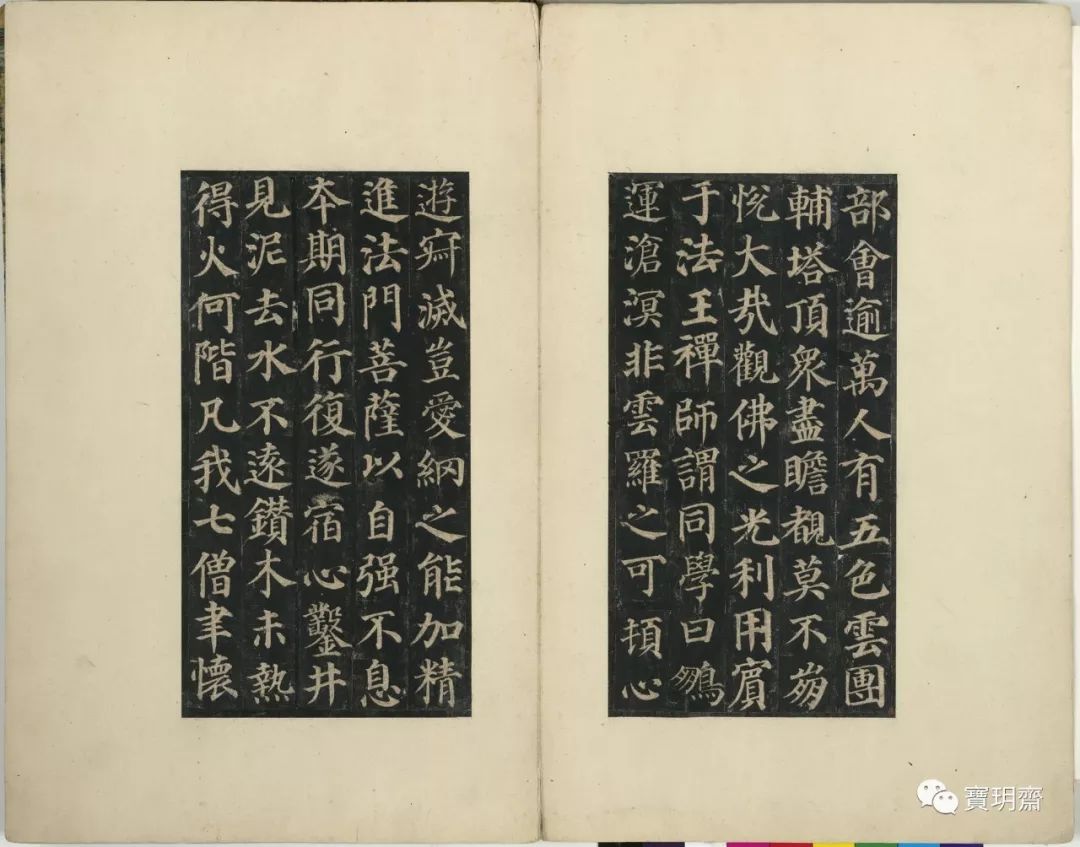 部會逾萬人有五色雲團
輔塔頂衆盡瞻覩莫不崩
悅大哉觀佛之光利用賓
于法王禪師謂同學曰鵬
運滄溟非雲羅之可頓心
遊寂滅豈愛網之能加精
進法門菩薩以自强不息
本期同行復遂宿心鑿井
見泥去水不遠鑽木未熱
得火何階凡我七僧聿懷
寶玥齋